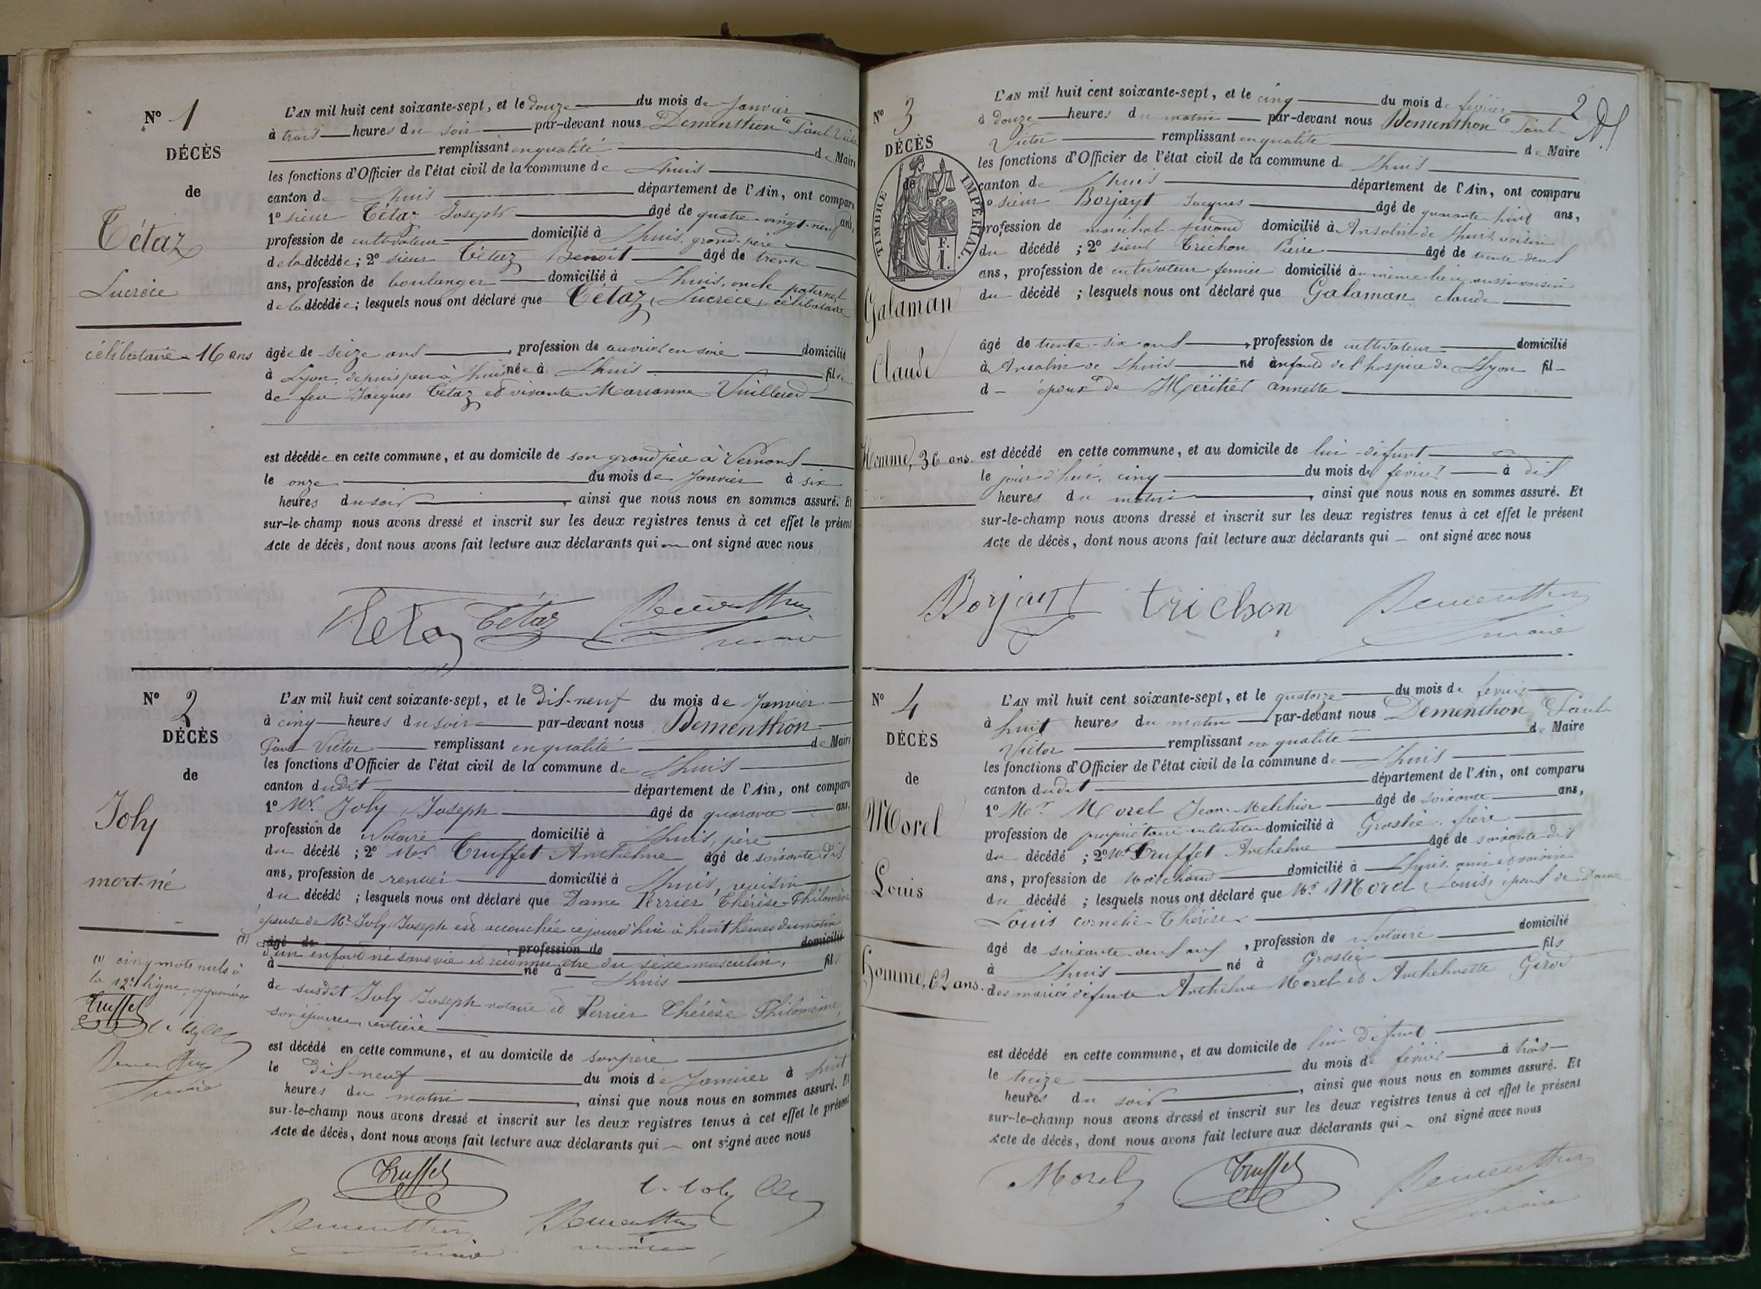 N° 1
DÉCÈS
de
Tétaz
Lucrèce
célibataire 16 ans
L'AN mil huit cent soixante-sept, et le douze du mois de Janvier
à trois heures du soir par-devant nous Dementhon Paul Victor
remplissant en qualité de Maire
les fonctions d'Officier de l'état civil de la commune de Lhuis
canton de Lhuis département de l'Ain, ont comparu
1° sieur Tétaz Joseph âgé de quatre-vingt-neuf ans,
profession de cultivateur domicilié à Lhuis, grand-père
de la décédée ; 2° sieur Tétaz Benoit âgé de trente
ans, profession de boulanger domicilié à Lhuis, oncle paternel
de la décédée ; lesquels nous ont déclaré que Tétaz, Lucrèce, célibataire
âgée de seize ans, profession de ouvrière en soie domicilié
à Lyon, depuis peu à Lhuis née à Lhuis fille
de feu Jacques Tétaz et vivante Marianne Vuillerod
est décédée en cette commune, et au domicile de son grand père à
le onze du mois de Janvier à six
heures du soir, ainsi que nous nous en sommes assuré. Et
sur-le-champ nous avons dressé et inscrit sur les deux registres tenus à cet effet le présent
Acte de décès, dont nous avons fait lecture aux déclarants qui ont signé avec nous
Tetaz Tétaz Dementhon
maire
N° 2
DÉCÈS
de
Joly
mort-né
(1) cinq mots nuls à
la 12e ligne
Truffet
Joly
Dementhon
maire
L'AN mil huit cent soixante-sept, et le dix-neuf du mois de Janvier
à cinq heures du soir par-devant nous Dementhon
Paul Victor remplissant en qualité de Maire
les fonctions d'Officier de l'état civil de la commune de Lhuis
canton dudit département de l'Ain, ont comparu
1° Mr Joly Joseph âgé de quarante ans,
profession de Notaire domicilié à Lhuis, père
du décédé ; 2° Mr Truffet Anthelme âgé de soixante-dix
ans, profession de rentier domicilié à Lhuis, voisin
du décédé ; lesquels nous ont déclaré que Dame Perrier Thérèse Philomène
épouse de Mr Joly Joseph est accouchée cejourd'hui à huit heures du matin
(1) âgé de profession de domicilié
d'un enfant né sans vie et reconnu être du sexe masculin,
à né à Lhuis fils
de susdit Joly Joseph notaire et Perrier Thérèse Philomène,
son épouse rentière
est décédé en cette commune, et au domicile de son père
le dix-neuf du mois de Janvier à huit
heures du matin, ainsi que nous nous en sommes assuré. Et
sur-le-champ nous avons dressé et inscrit sur les deux registres tenus à cet effet le présent
Acte de décès, dont nous avons fait lecture aux déclarants qui ont signé avec nous
Truffet Joly
Dementhon Dementhon
maire maire
2
N° 3
DÉCÈS
de
TIMBRE IMPÉRIAL
Galaman
Claude
Homme, 36 ans.
L'AN mil huit cent soixante-sept, et le cinq du mois de février
à douze heures du matin par-devant nous Dementhon Paul
Victor remplissant en qualité de Maire
les fonctions d'Officier de l'état civil de la commune de Lhuis
canton de Lhuis département de l'Ain, ont comparu
1° sieur Borjayt Jacques âgé de quarante huit ans,
profession de maréchal-ferrand domicilié à Ansolin de Lhuis, voisin
du décédé ; 2° sieur Trichon Pierre âgé de
ans, profession de cultivateur fermier domicilié au même lieu, aussi voisin
du décédé ; lesquels nous ont déclaré que Galaman, claude
âgé de trente-six ans, profession de cultivateur domicilié
à Ansolin de Lhuis né enfant de l'hospice de Lyon fil
d époux de Lhéritier annette
est décédé en cette commune, et au domicile de lui-défunt
le jourd'hui, cinq du mois de février à dix
heures du matin, ainsi que nous nous en sommes assuré. Et
sur-le-champ nous avons dressé et inscrit sur les deux registres tenus à cet effet le présent
Acte de décès, dont nous avons fait lecture aux déclarants qui ont signé avec nous
Borjayt trichon Dementhon
maire
N° 4
DÉCÈS
de
Morel
Louis
Homme, 62 ans.
L'AN mil huit cent soixante-sept, et le quatorze du mois de février
à huit heures du matin par-devant nous Dementhon Paul
Victor remplissant en qualité de Maire
les fonctions d'Officier de l'état civil de la commune de Lhuis
canton dudit département de l'Ain, ont comparu
1° Mr Morel Jean-Melchior âgé de soixante ans,
profession de propriétaire cultivateur domicilié à Groslée, frère
du décédé ; 2° Mr Truffet Anthelme âgé de soixante-dix
ans, profession de domicilié à Lhuis, ami et voisin
du décédé ; lesquels nous ont déclaré que Mr Morel Louis, époux de Dame
Louis cornélie-Thérèse
âgé de soixante deux ans, profession de Notaire domicilié
à Lhuis né à Groslée fils
des mariés défunts Anthelme Morel et Anthelmette Girod
est décédé en cette commune, et au domicile de lui défunt
le treize du mois de février à trois
heures du soir, ainsi que nous nous en sommes assuré. Et
sur-le-champ nous avons dressé et inscrit sur les deux registres tenus à cet effet le présent
Acte de décès, dont nous avons fait lecture aux déclarants qui ont signé avec nous
Morel Truffet Dementhon
maire